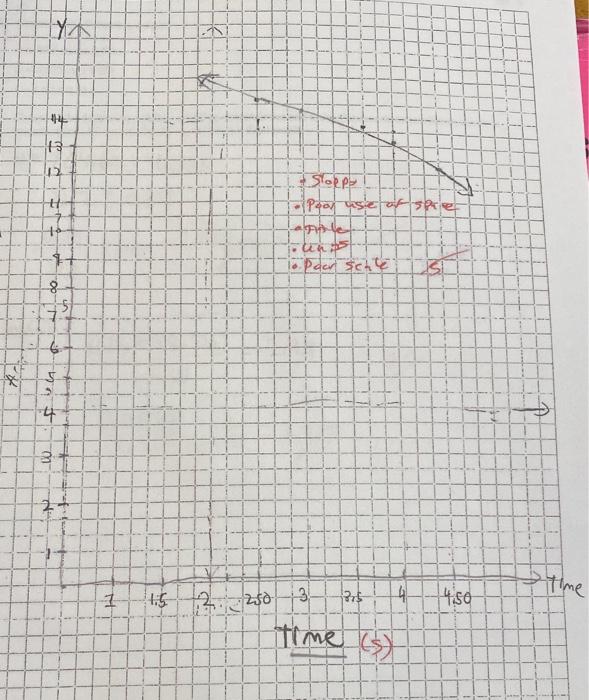 Y
14
13
12
11
10
9
8
7
6
5
4
3
2
1
1 1.5 2 2.50 3 3.5 4 4.50 Time
• Sloppy
• Poor use of space
• Title
• units
• Poor scale 5
Time (s)